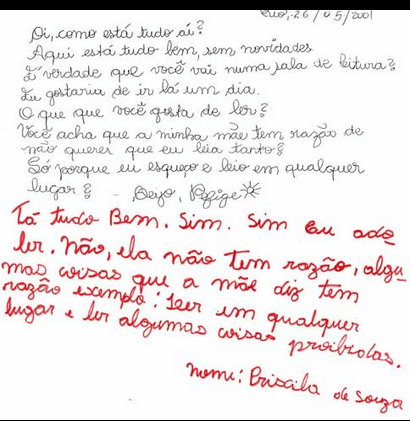 Rio, 26/05/2001
Oi, como está tudo aí?
Aqui está tudo bem, sem novidades.
É verdade que você vai numa sala de leitura?
Eu gostaria de ir lá um dia.
O que que você gosta de ler?
Você acha que a minha mãe tem razão de
não querer que eu leia tanto?
Só porque eu esqueço e leio em qualquer
lugar?
Tá tudo Bem. Sim. Sim eu ado
ler. Não, ela não tem razão, algu
mas coisas que a mãe diz tem
razão exemplo: leer em qualquer
lugar e ler algumas coisas proibidas.
nome: Priscila de Souza